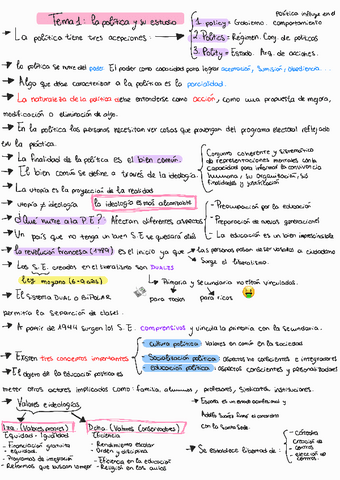 Tema 1: la política y su estudio
La política tiene tres acepciones:
Política influye en el comportamiento
1. policy = Gobierno.
2. Politics = Régimen. Conj. de políticas
3. Polity = Estado. Arg. de acciones.
La política se nutre del poder. El poder como capacidad para lograr aceptación, sumisión, obediencia...
Algo que debe caracterizar a la política es la parcialidad.
La naturaleza de la política debe entenderse como acción, como una propuesta de mejora,
modificación o eliminación de algo.
En la política las personas necesitan ver cosas que provengan del programa electoral reflejado
en la práctica.
La finalidad de la política es el bien común.
El bien común se define a través de la ideología.
Conjunto coherente y sistemático
de representaciones mentales con la
capacidad para informar la convivencia
humana, su organización, sus
finalidades y justificación
La utopía es la proyección de la realidad
utopía ≠ ideología la ideología es más alcanzable
¿Qué nutre a la P.E? Afectan diferentes aspectos
- Preocupación por la educación
- Preparación de nuevas generaciones
- La educación es un bien imprescindible
Un país que no tenga un buen S.E se quedará atrás
La revolución francesa (1789) es el inicio ya que
las personas pasan a ser ciudadano
Surge el liberalismo.
Los S.E. creados en el liberalismo son DUALES
Ley moyano (6-9 años)
Primaria y Secundaria no están vinculados.
para todos
para ricos
El sistema DUAL o BIPOLAR
permitía la separación de clases.
A partir de 1944 surgen los S.E. comprensivos y vincula la primaria con la secundaria.
Existen tres conceptos importantes
cultura política: Valores en común en la sociedad
Socialización política: aspectos no conscientes e integradores
Educación política: aspectos conscientes y personalizadores
El objeto de la educación política es
meter otros actores implicados como: familia, alumnos, profesores, sindicatos, instituciones.
Valores e ideologías
España es un estado confesional y
Adolfo Suárez firmó el concordato
con la Santa Sede.
Izq. (Valores progres)
Equidad - Igualdad
- Financiación gratuita
equidad.
- Programas de integración
- Reformas que buscan romper
Dcha. (Valores conservadores)
Eficiencia
- Rendimiento escolar
- Orden y disciplina
- Eficiencia en la educación
- Religión en las aulas
Se establece libertad de:
- cátedra
- creación de centros
- elección de centros.